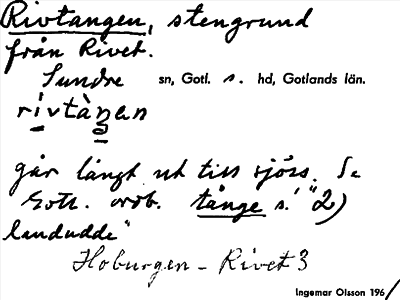 Rivtangen, stengrund
från Rivet.
Sundre sn, Gotl. s. hd, Gotlands län.
rivtàŋen
går långt ut till sjöss. Se
Gotl. ordb. tånge s. "2)
landudde"
Hoburgen - Rivet 3
Ingemar Olsson 196/